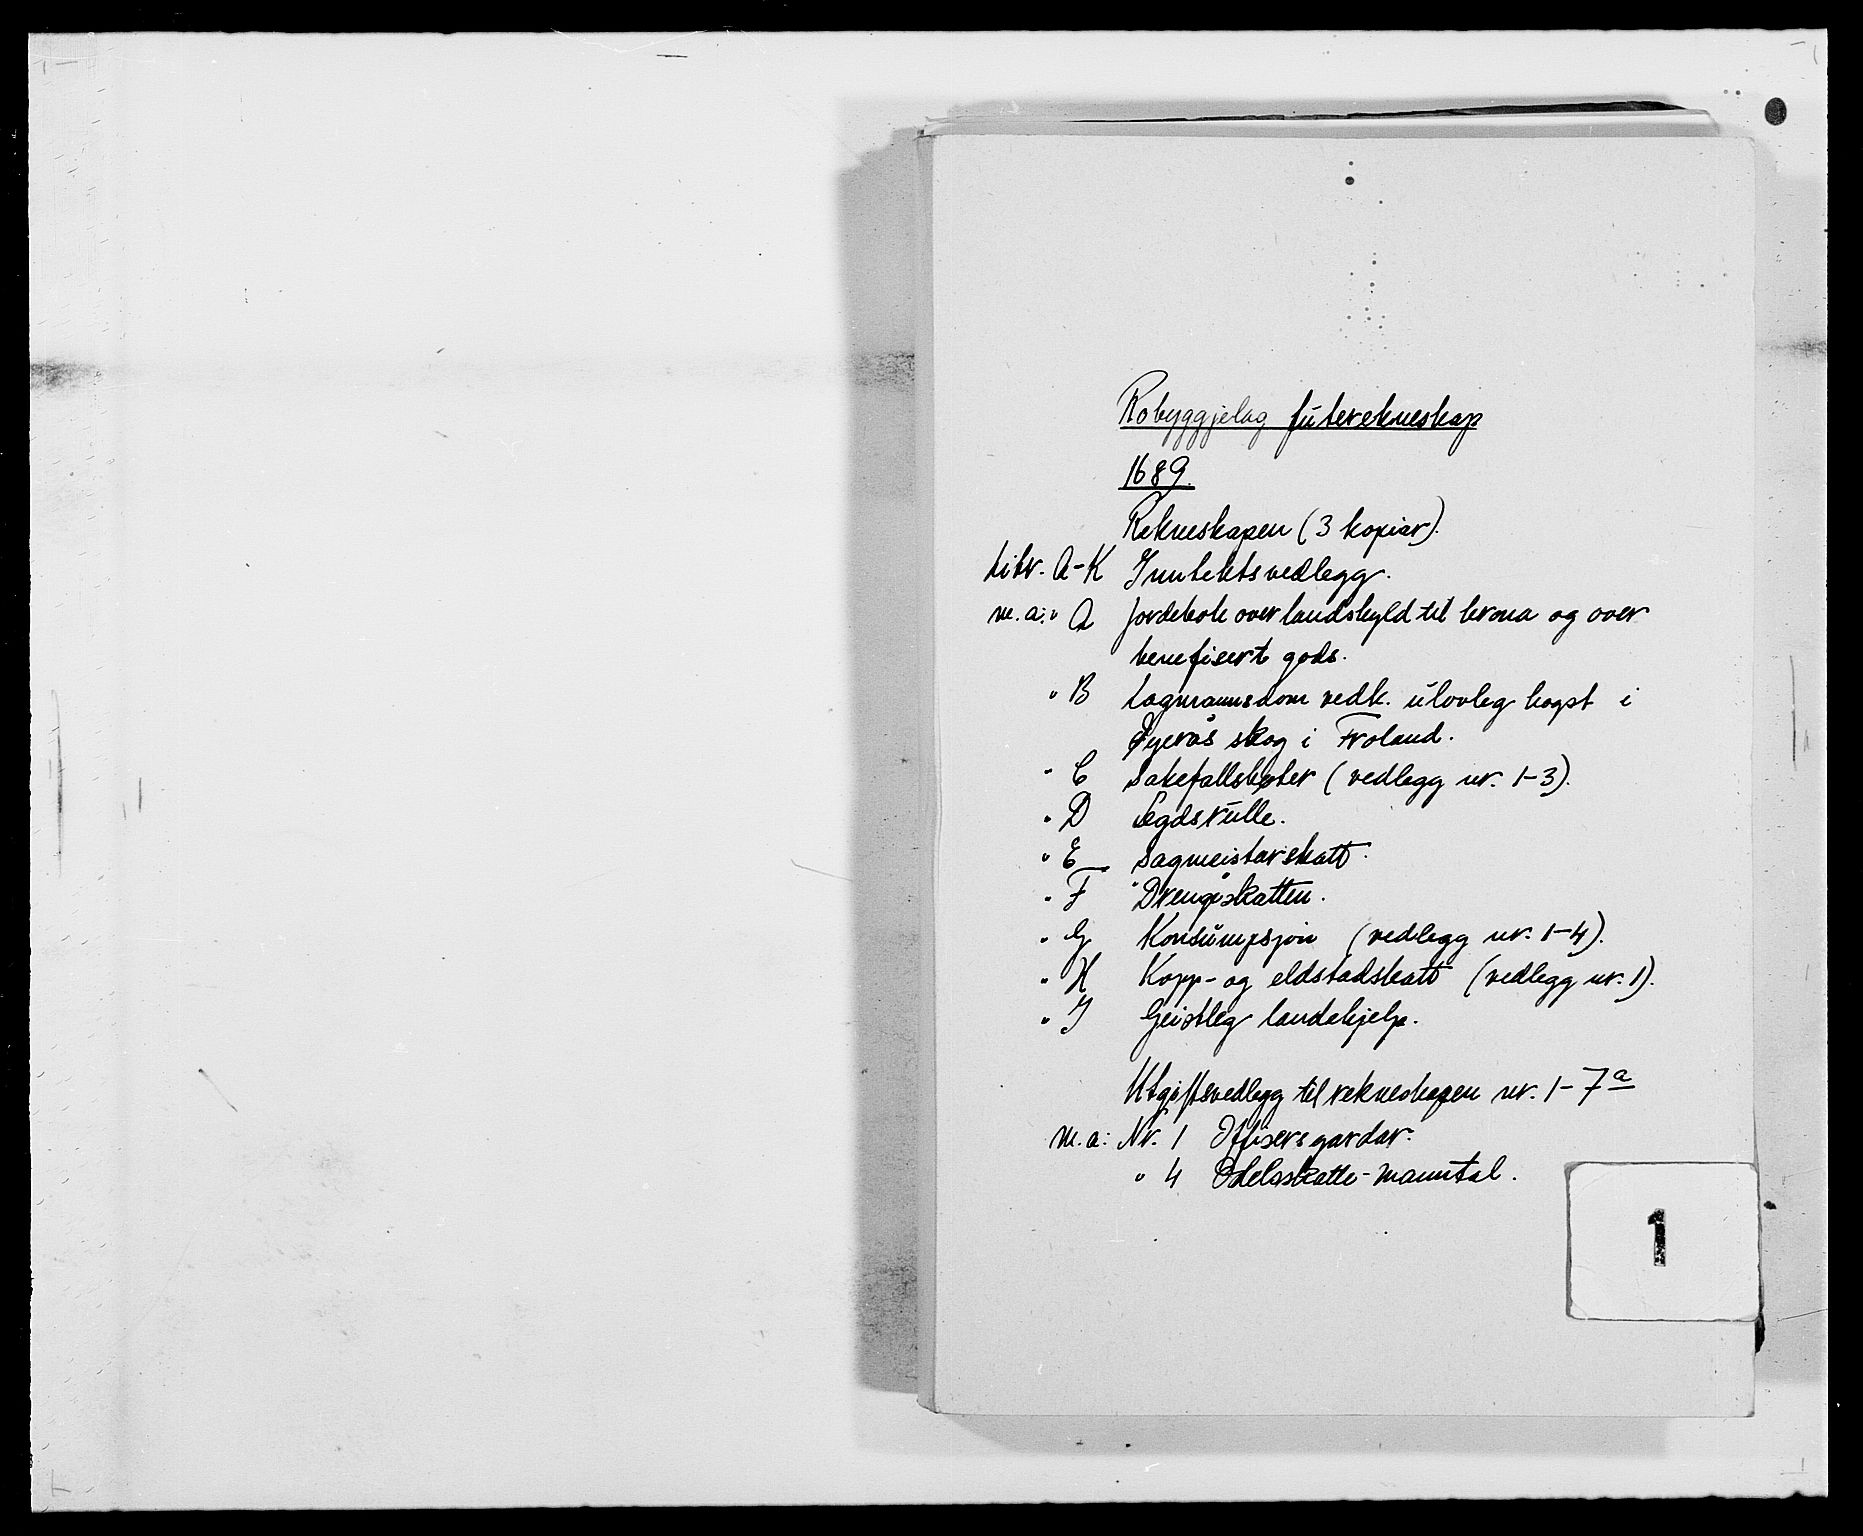 Robyggjelag futerekneskap
1689.
Rekneskapen (3 kopiar).
Litr. A-K Inntektsvedlegg.
m.a: " A Jordebok over landskyld til krona og over
benefisert gods.
" B Lagmannsdom vedk. ulovleg hogst i
Øyerås skog i Froland.
" C Sakefallsbøter (vedlegg nr. 1-3).
" D Legdsrulle.
" E Sagmeistarskatt.
" F "Drengeskatten.
" G Konsumpsjon (vedlegg nr. 1-4).
" H Kopp- og eldstadskatt (vedlegg nr. 1).
" I Geistleg landehjelp.
Utgiftsvedlegg til rekneskapen nr. 1-7a
m.a: Nr. 1 Offisersgardar.
" 4 Odelsskatte-manntal.
1